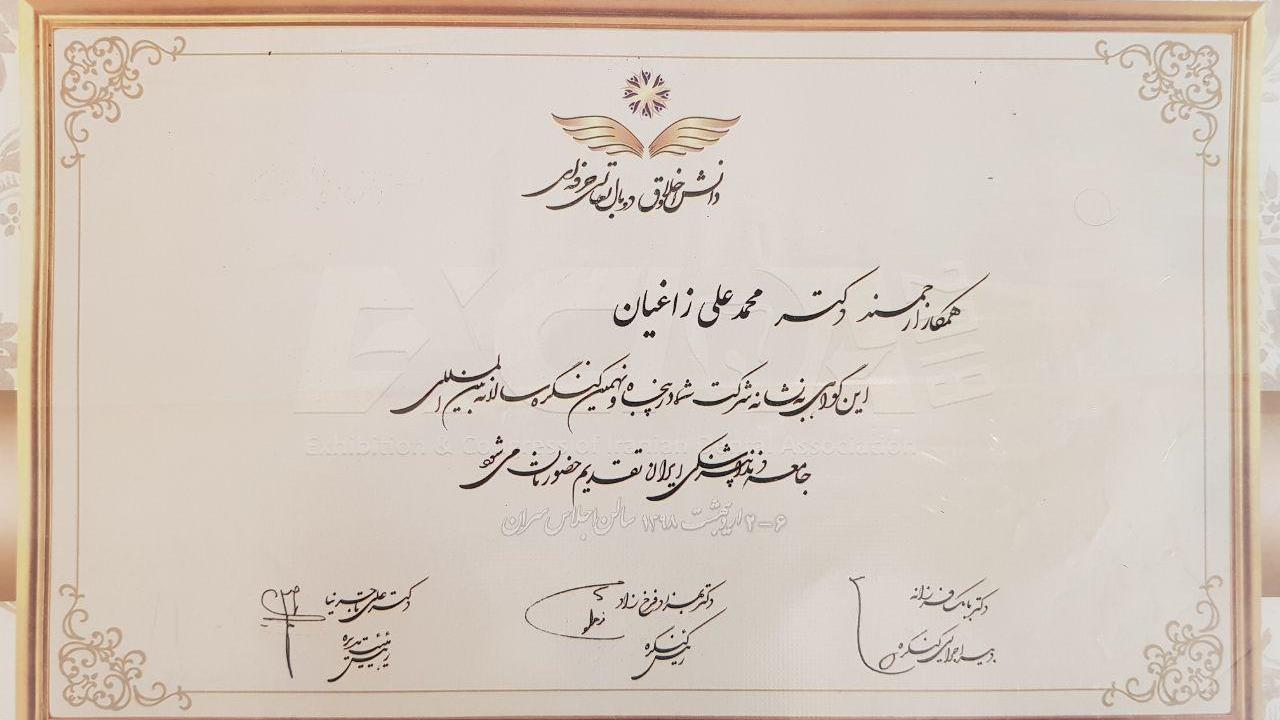 دانش و اخلاق دو بال تعالی حرفه‌ای
همکار ارجمند دکتر محمد علی زاغیان
این گواهی به نشانه شرکت شما در پنجاه و نهمین کنگره سالانه بین المللی
جامعه دندانپزشکی ایران تقدیم حضورتان می شود
Exhibition & Congress of Iranian Dental Association
۲-۶ اردیبهشت ۱۳۹۸ سالن اجلاس سران
دکتر بابک فرزانه
دبیر اجرایی کنگره
دکتر بهزاد فرخ زاد
رئیس کنگره
دکتر علی تاجرنیا
رئیس هیئت مدیره